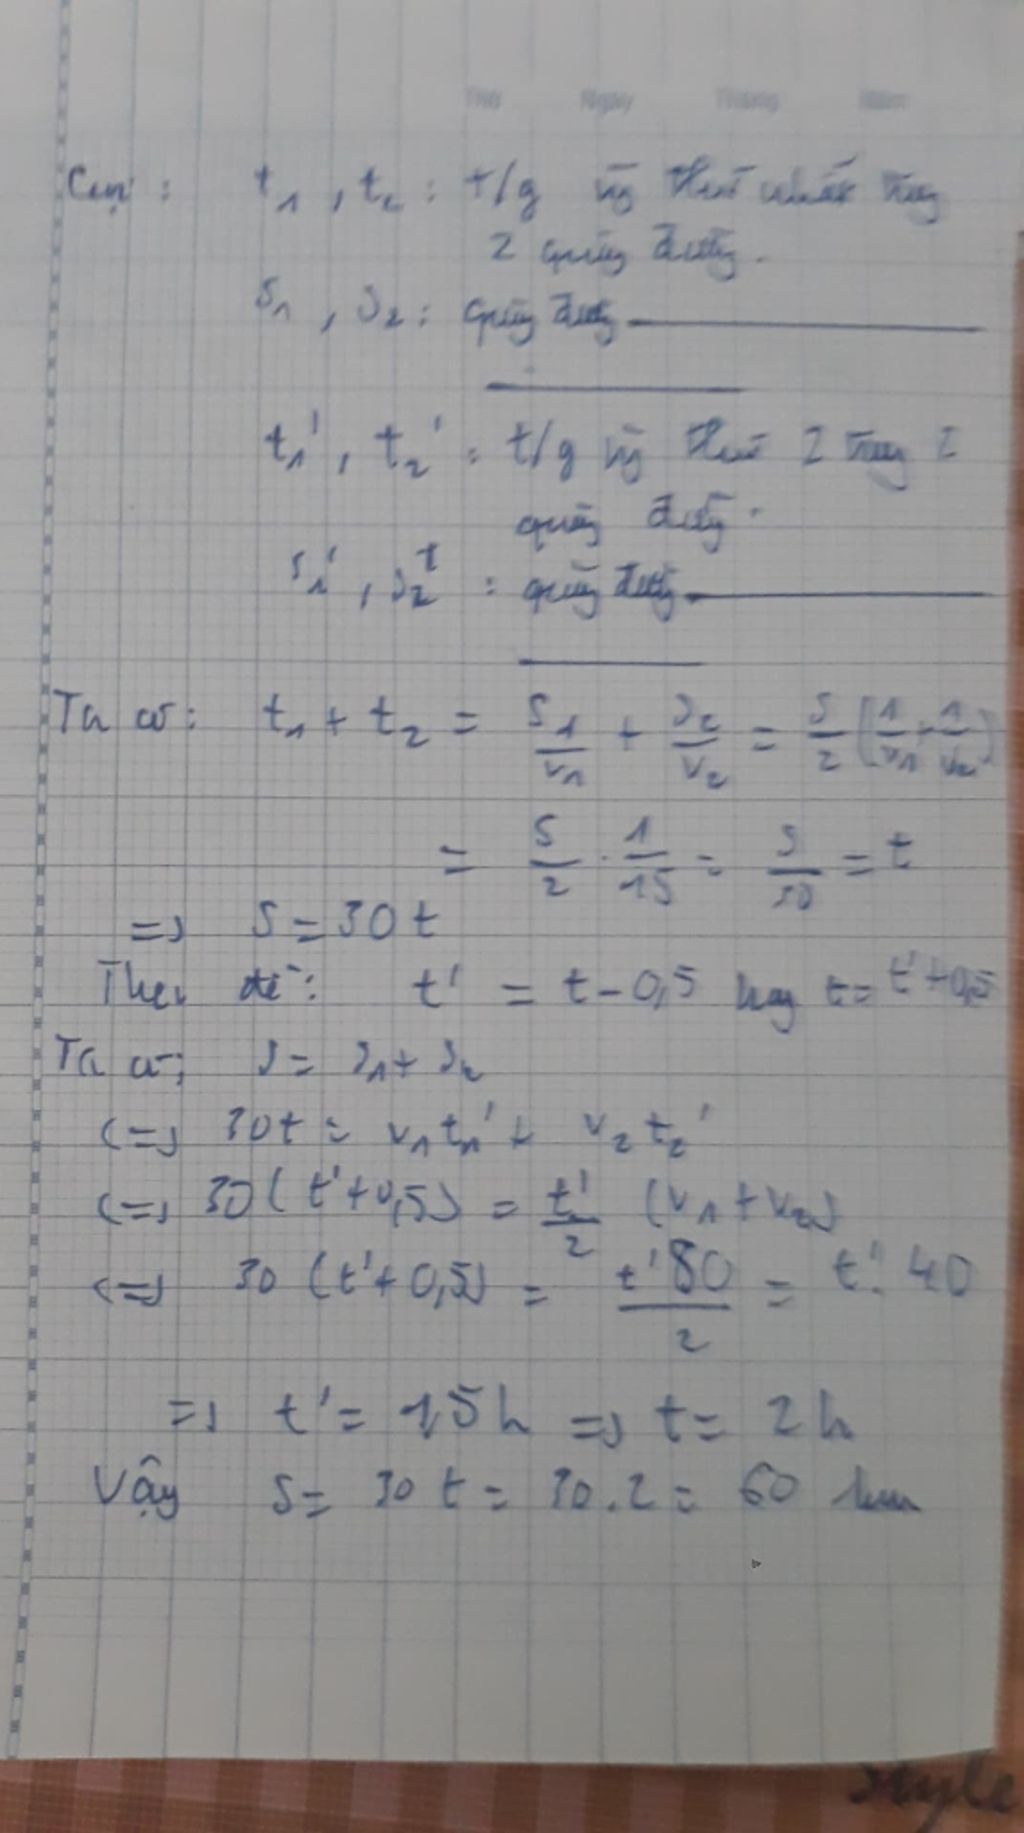 Thứ Ngày Tháng Năm
Gọi : t₁ , t₂ : t/g ng thứ nhất trong
2 quãng đường .
s₁ , s₂ : quãng đường
t₁' , t₂' : t/g ng thứ 2 trong 2
quãng đường .
s₁' , s₂' : quãng đường
Ta có : t₁ + t₂ = s₁/v₁ + s₂/v₂ = s/2 (1/v₁ + 1/v₂)
= s/2 . 1/15 = s/30 = t
=> s = 30t
Theo đề : t' = t - 0,5 hay t = t' + 0,5
Ta có : s = s₁ + s₂
<=> 30t = v₁t₁' + v₂t₂'
<=> 30 ( t' + 0,5 ) = t'/2 (v₁ + v₂)
<=> 30 (t' + 0,5) = t'80/2 = t'. 40
=> t' = 1,5h => t = 2h
Vậy s = 30 t = 30 . 2 = 60 km
style